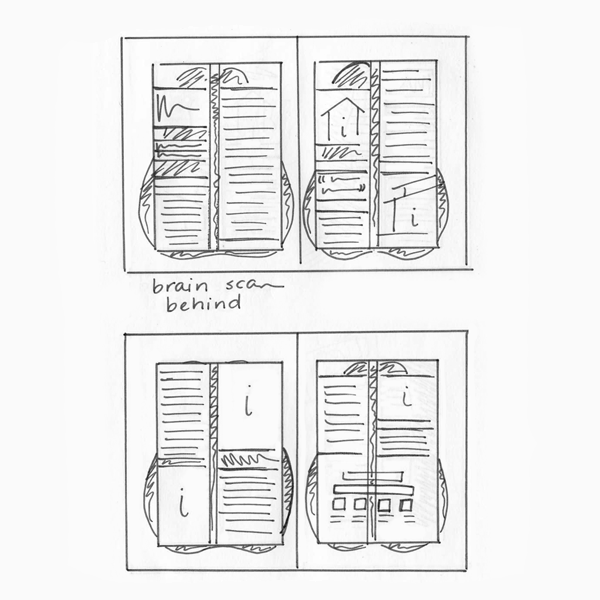 i
i
brain scan
behind
i
i
i